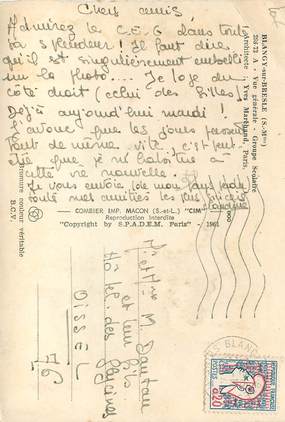 Chers amis
Admirez le C.E.G dans toute
sa splendeur ! Il faut dire
qu'il est singulièrement embelli
sur la photo.... Je loge du
côté droit (celui des filles)
Déjà aujourd'hui mardi !
J'avoue que les jours passent
tout de même vite. C'est peut-
être que je m'habitue à
cette vie nouvelle.
Je vous envoie (de mon
toutes mes amitiés les plus
Claudine
BLANGY-sur-BRESLE (S.-Mme)
208-72 A - Vue générale - Groupe Scolaire
Architecte : Yves Marchand, Paris.
COMBIER IMP. MACON (S.-et-L.) "CIM"
Reproduction Interdite
"Copyright by S.P.A.D.E.M. Paris" - 1961
couleur véritable
B.C.V.
Mr et Mme M. Dautan
et leur fils
Hôtel des Glycines
OISSEL
BLANGY
0,20